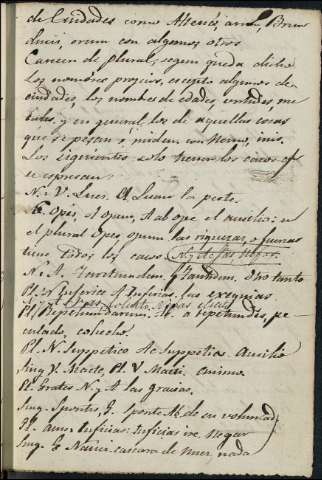 de Ciudades como Athenas, Brun
duis, orum con algunos otros
Carecen de plural, segun queda dicho
los nombres propios, excepto algunos de
ciudades, los nombres de edades, virtudes, me
tales, y en general los de aquellas cosas
que se pesan ó miden con número, unis.
Los siguientes solo tienen los casos qe
se expresan
N. y V. Lues. A. Luem la peste.
G. Opis, A. Opem, Ab ope el auxilio: en
el plural Opes, opum las riquezas, o fuerzas
tiene todos los casos
N. A. Tantumdem, G. Tantidem. Otro tanto
Pl. N. Inferiæ A. Inferias. las exequias
Pl. Repetundarum. A. a repetundis, pe
culado, cohecho.
Pl. N. Suppetiæ Ac. Suppetias. Auxilio
Sing. V. Macte, Pl. V. Macti. animo.
Pl. Grates N. y A. las gracias.
Sing. Spontis, G. sponte Ab. de su voluntad
Pl. Acus. Inficias: Inficias ire. Negar
Sing. G. Nauci. cascara de nuez, nada